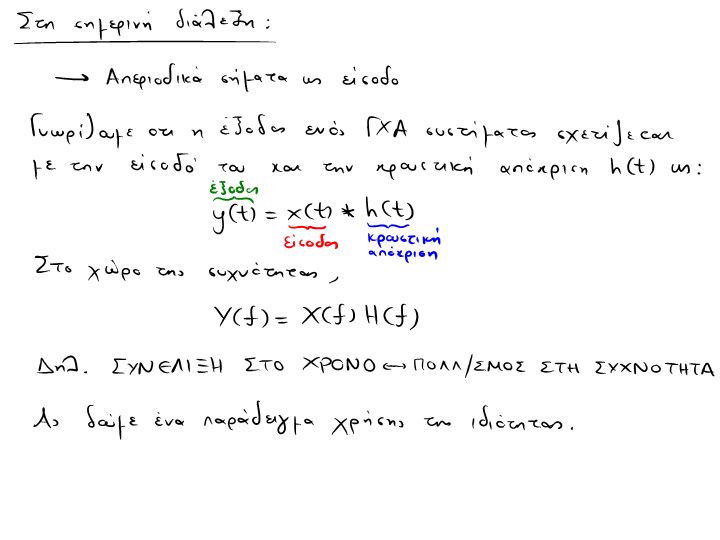 Στη σημερινή διάλεξη:
→ Απεριοδικά σήματα ως είσοδο
Γνωρίζαμε οτι η έξοδος ενός ΓΧΑ συστήματος σχετίζεται
με την είσοδό του και την κρουστική απόκριση h(t) ως:
έξοδος
y(t) = x(t) * h(t)
είσοδος κρουστική
απόκριση
Στο χώρο της συχνότητας,
Y(f) = X(f) H(f)
Δηλ. ΣΥΝΕΛΙΞΗ ΣΤΟ ΧΡΟΝΟ ↔ ΠΟΛΛ/ΣΜΟΣ ΣΤΗ ΣΥΧΝΟΤΗΤΑ
Ας δούμε ένα παράδειγμα χρήσης της ιδιότητας.